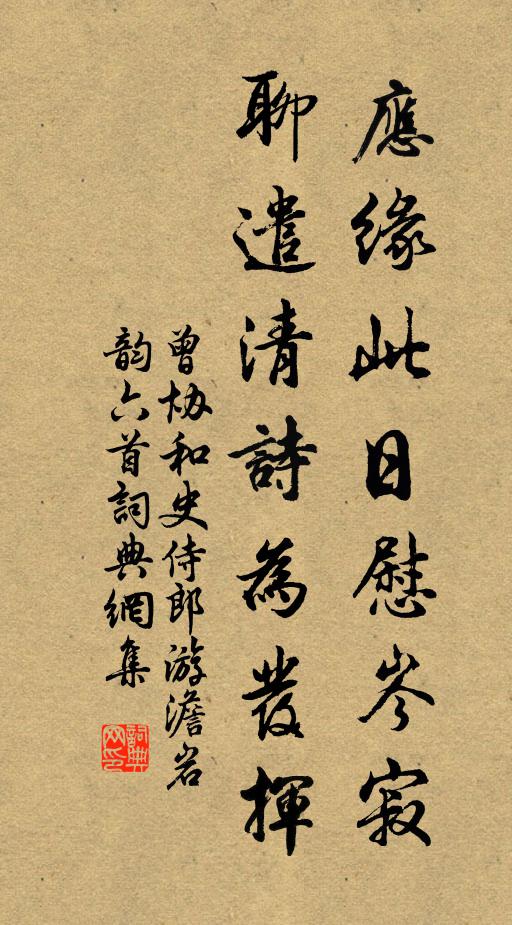 應緣此日慰岑寂
聊遣清詩為發揮
曾協和史侍郎游澹岩
韵六首詞典網集
詞典
网印